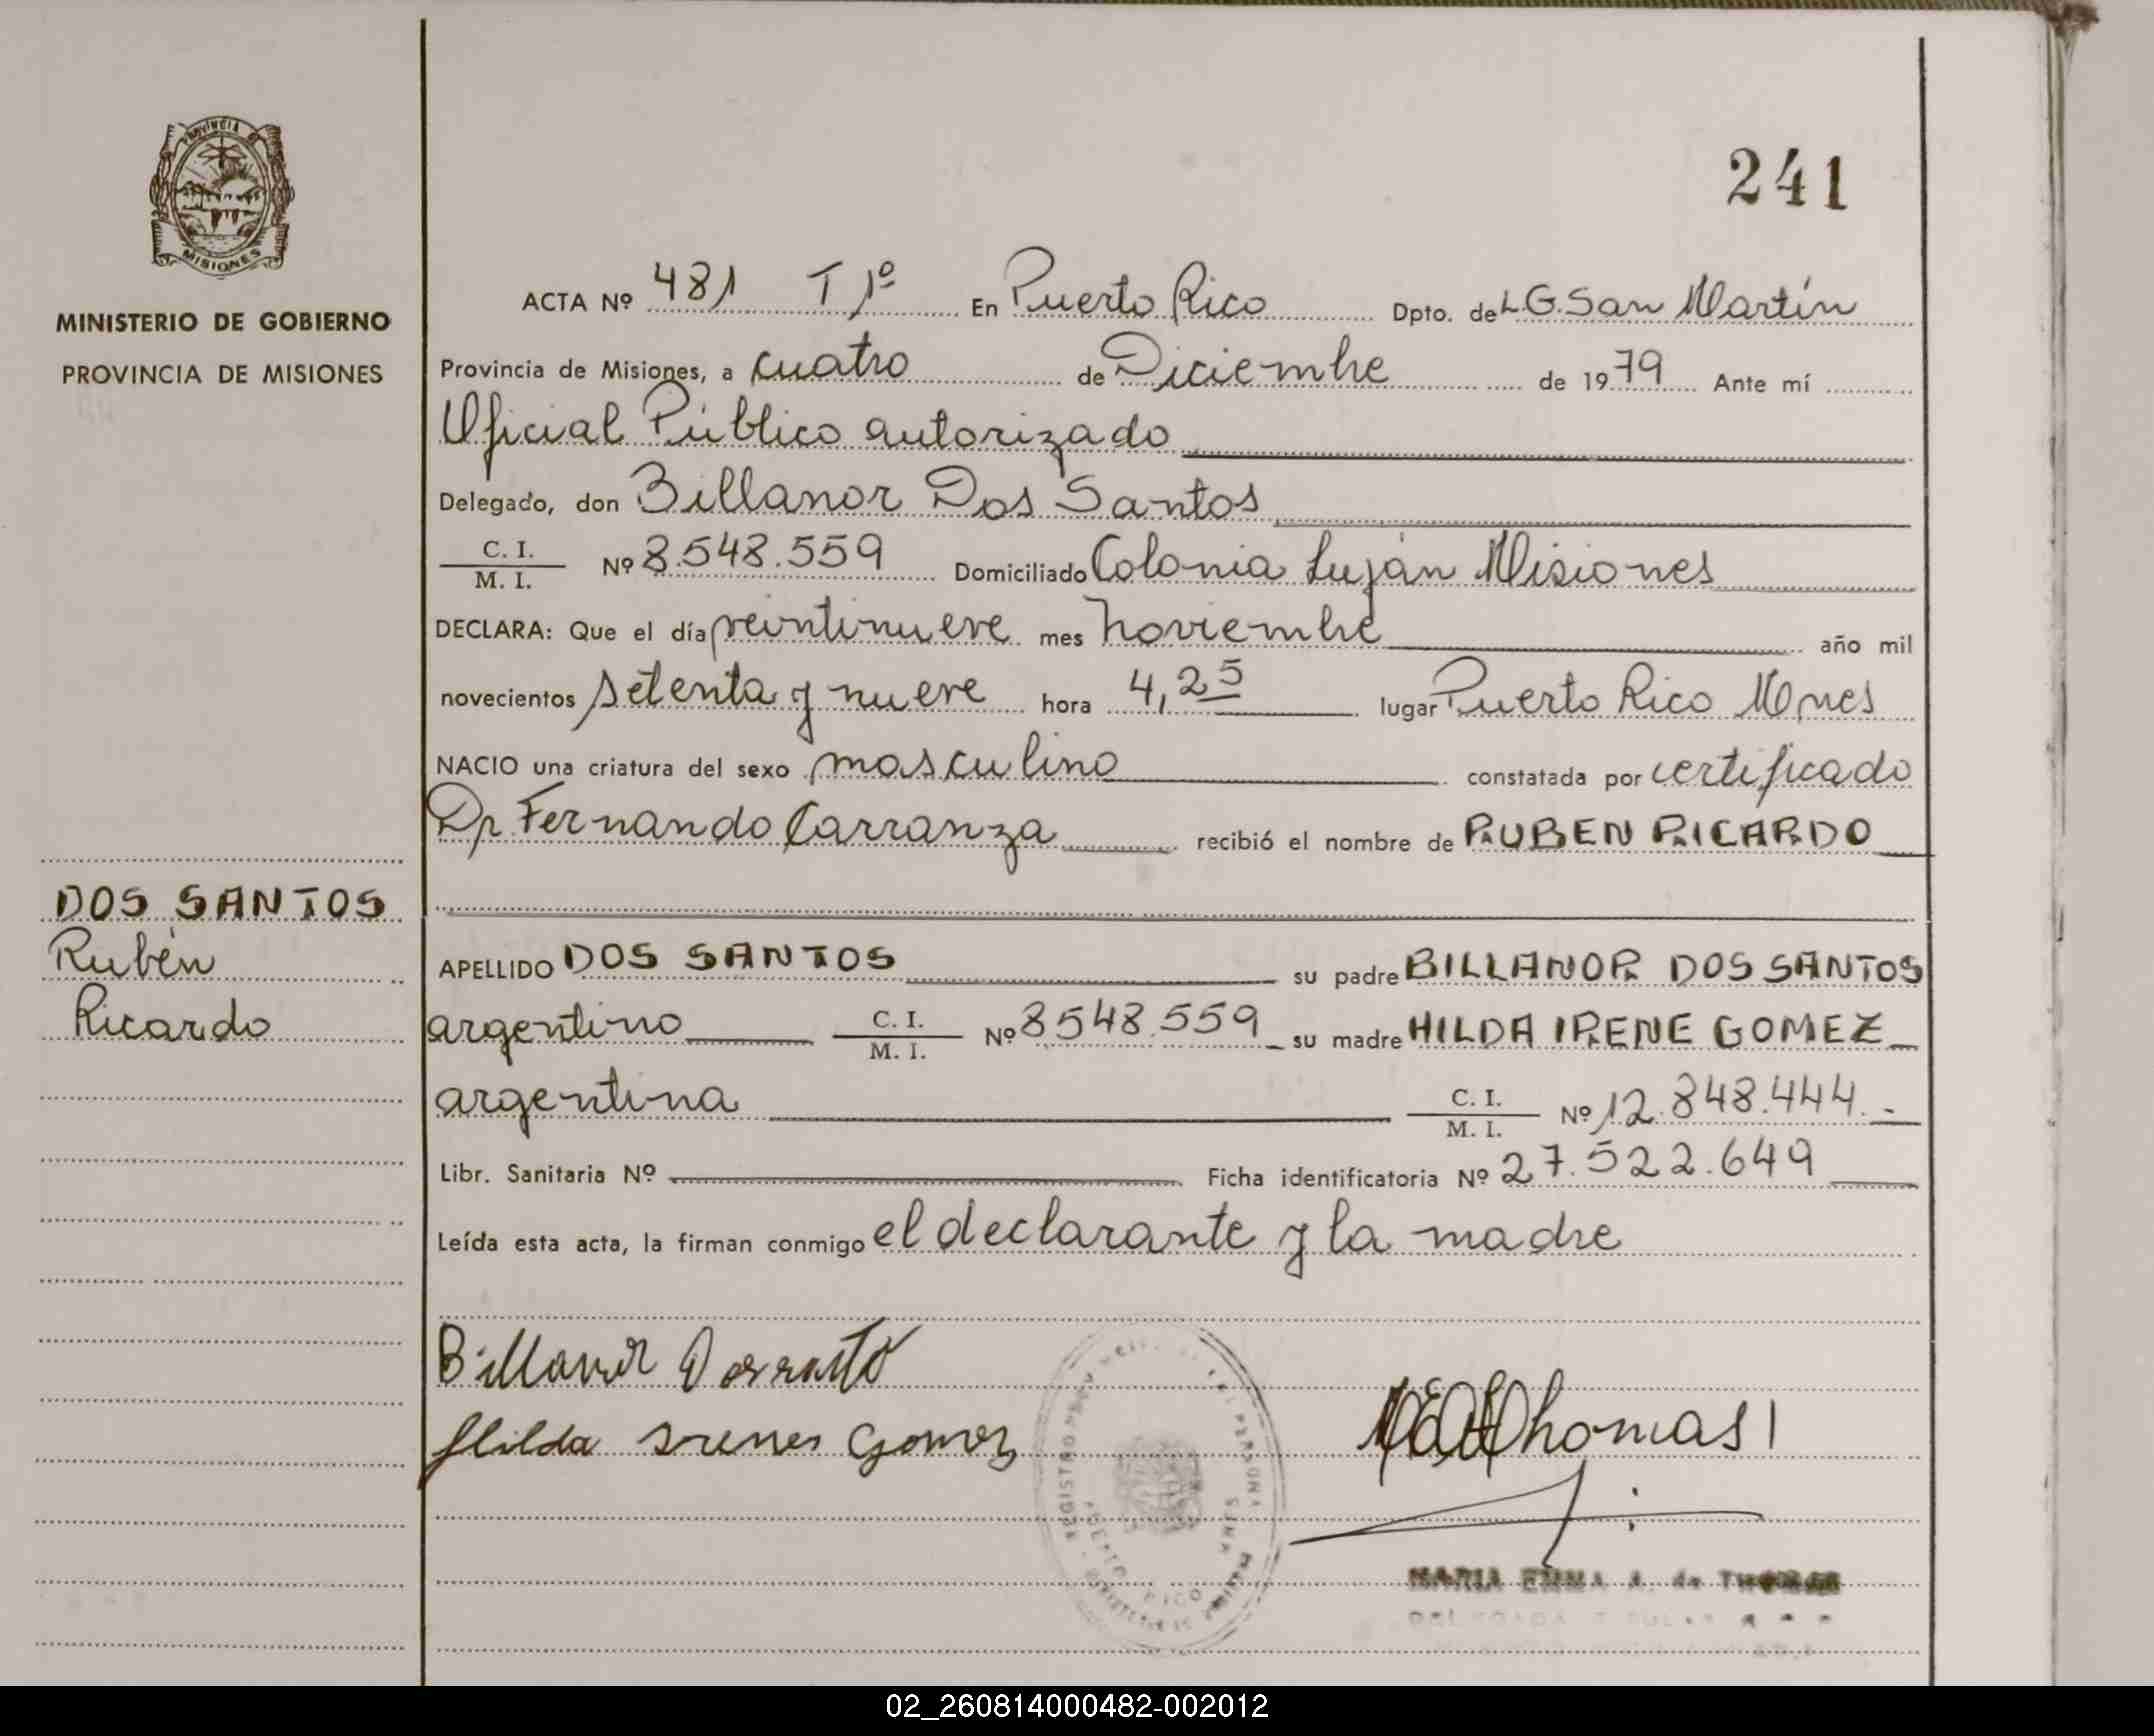 241
PROVINCIA DE
MISIONES
MINISTERIO DE GOBIERNO
PROVINCIA DE MISIONES
ACTA Nº 481 T 1º En Puerto Rico Dpto. de L.G.San Martín
Provincia de Misiones, a cuatro de Diciembre de 1979 Ante mí
Oficial Público autorizado
Delegado, don Billanor Dos Santos
C. I. / M. I. Nº 8.548.559 Domiciliado Colonia Luján Misiones
DECLARA: Que el día veintinueve mes noviembre año mil
novecientos setenta y nueve hora 4,25 lugar Puerto Rico Mnes
NACIO una criatura del sexo masculino constatada por certificado
Dr Fernando Carranza recibió el nombre de RUBEN RICARDO
DOS SANTOS
Rubén
Ricardo
APELLIDO DOS SANTOS su padre BILLANOR DOS SANTOS
argentino C. I. / M. I. Nº 8.548.559 su madre HILDA IRENE GOMEZ
argentina C. I. / M. I. Nº 12.848.444.-
Libr. Sanitaria Nº Ficha identificatoria Nº 27.522.649
Leída esta acta, la firman conmigo el declarante y la madre
Billanor
Hilda Irenes Gomez
Thomas
MARIA EMMA A. de THOMAS
02_260814000482-002012